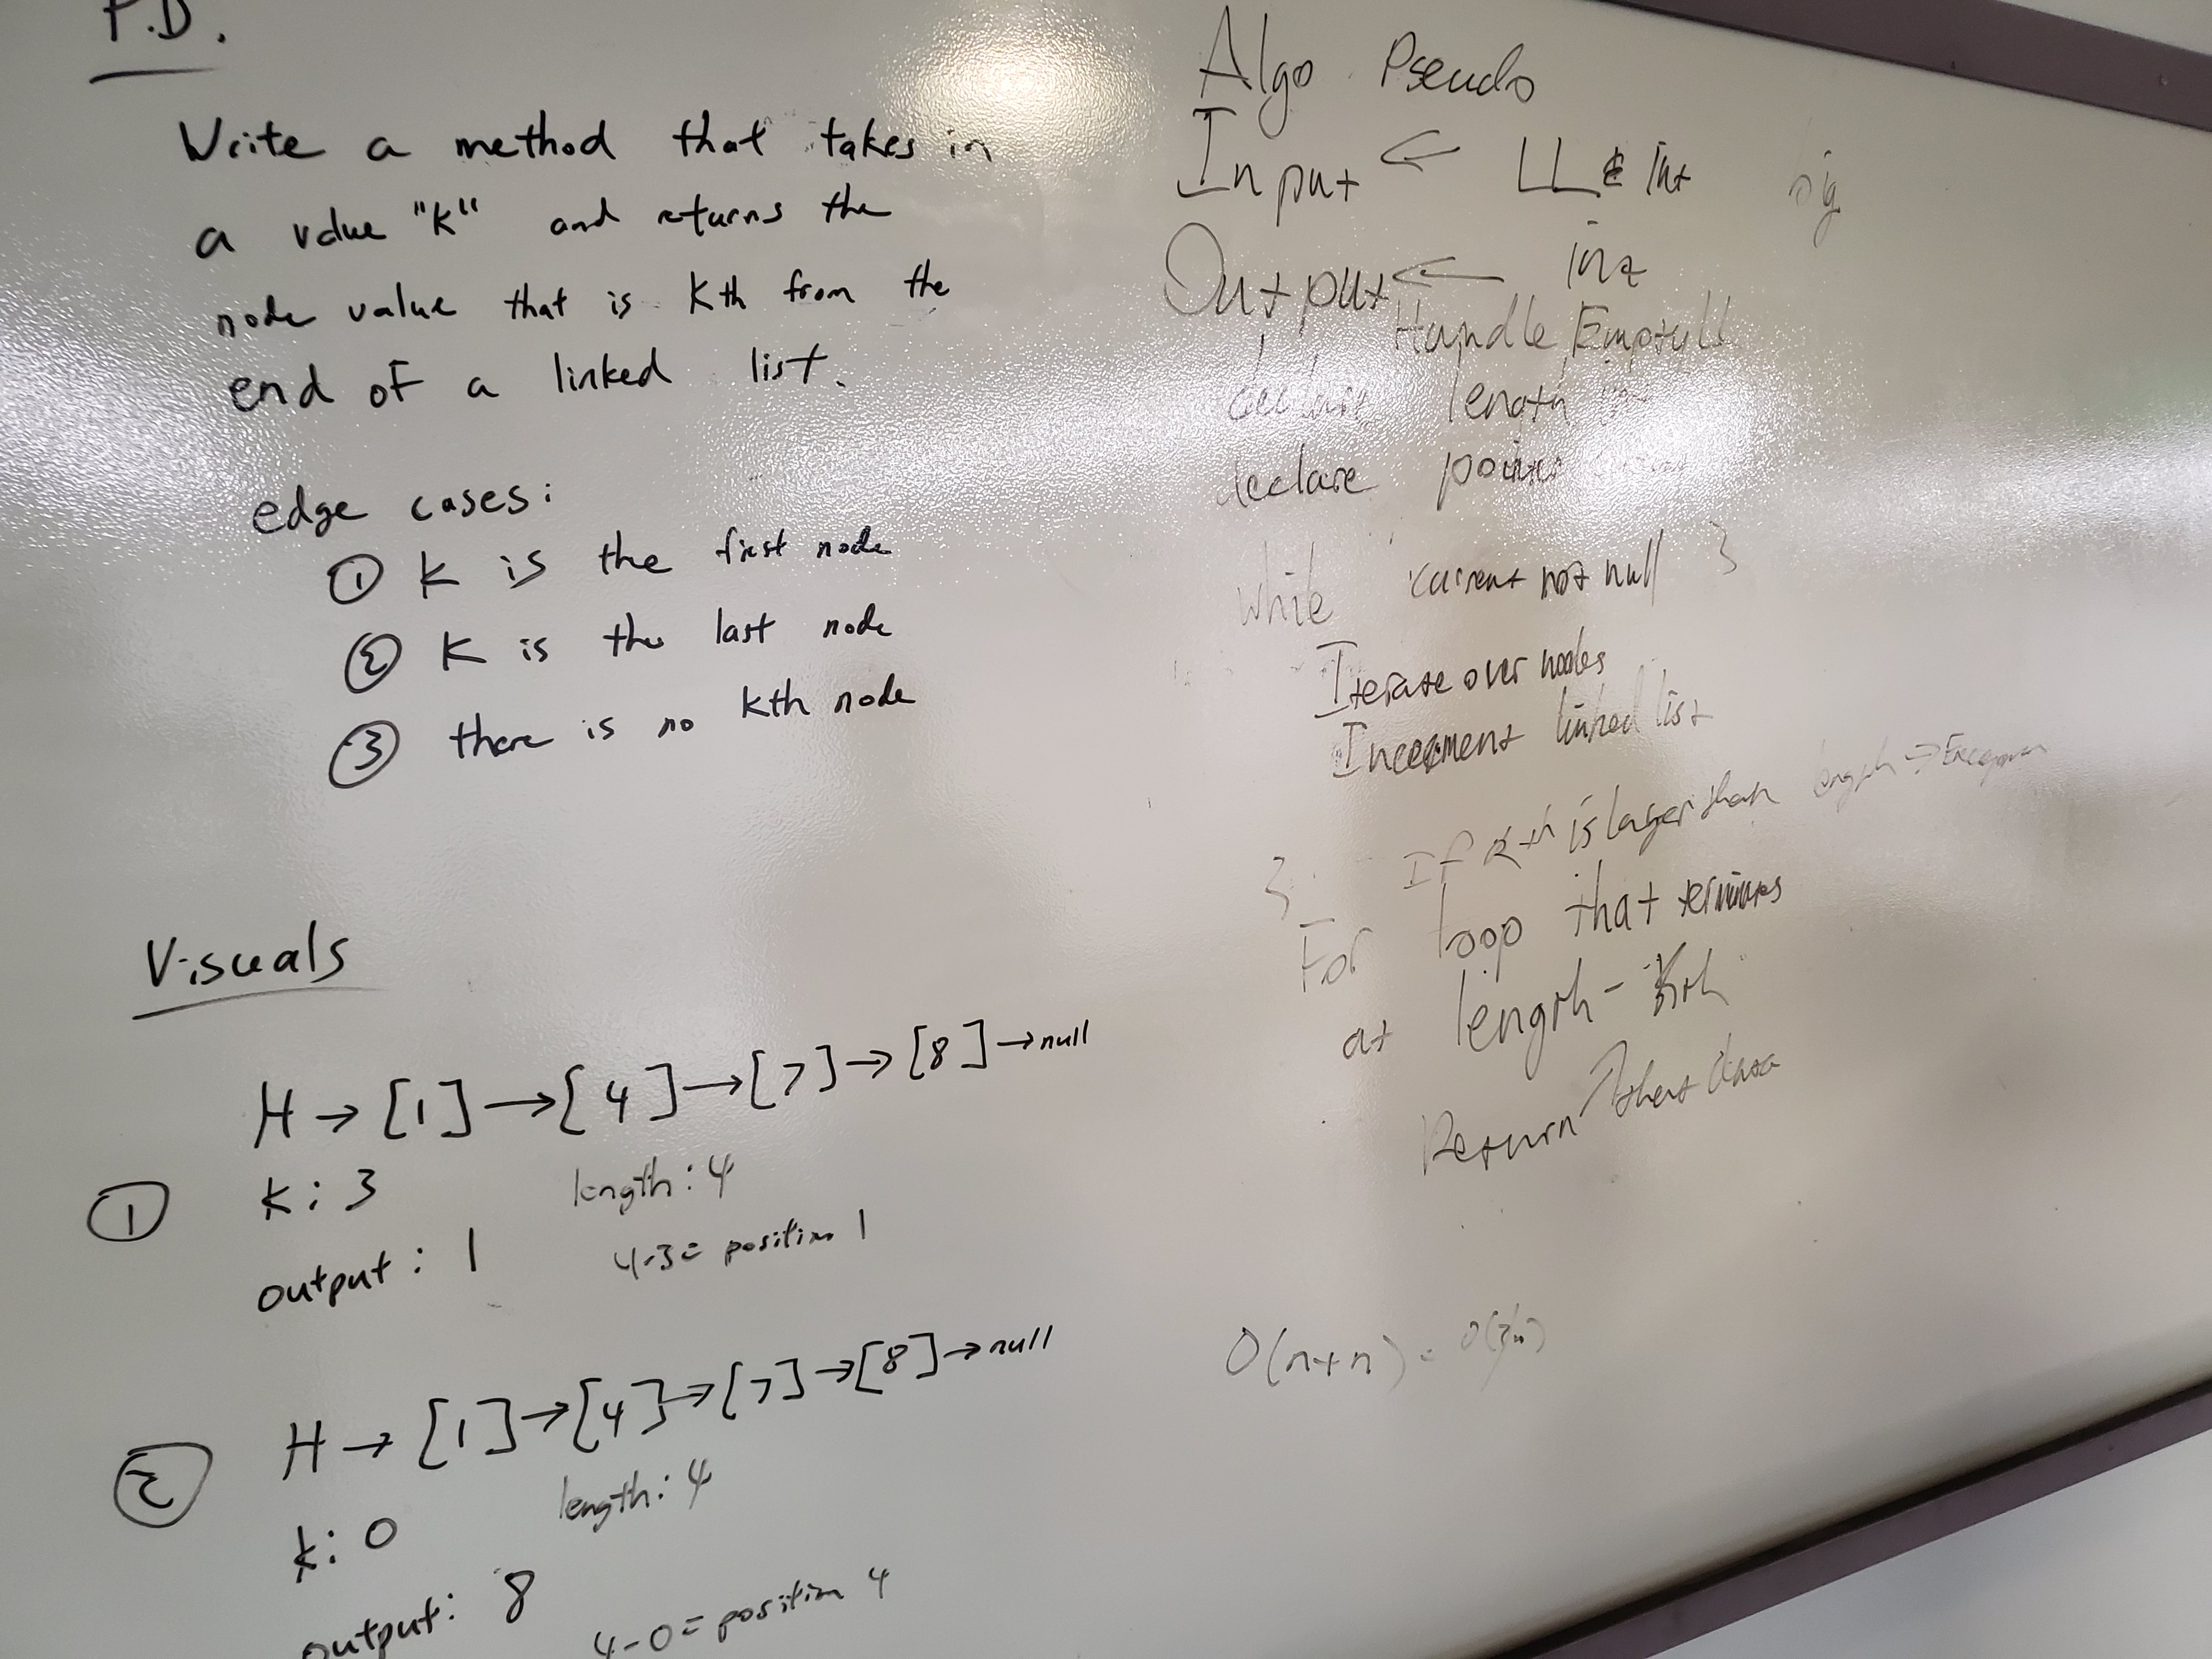 P.D.
Write a method that takes in
a value "k" and returns the
node value that is kth from the
end of a linked list.
edge cases:
① K is the first node
② K is the last node
③ there is no kth node
Visuals
H → [1] → [4] → [7] → [8] → null
① k: 3 length: 4
output: 1 4-3= position 1
H → [1] → [4] → [7] → [8] → null
② k: 0 length: 4
output: 8 4-0= position 4
Algo Pseudo
Input ← LL & int
Output ← int
Handle Empty ll
declare length
declare
while current not null }
Iterate over nodes
Increment linked list
If kth is larger than length → Exception
}
For loop that
at length - kth
Return that data
O(n+n) =